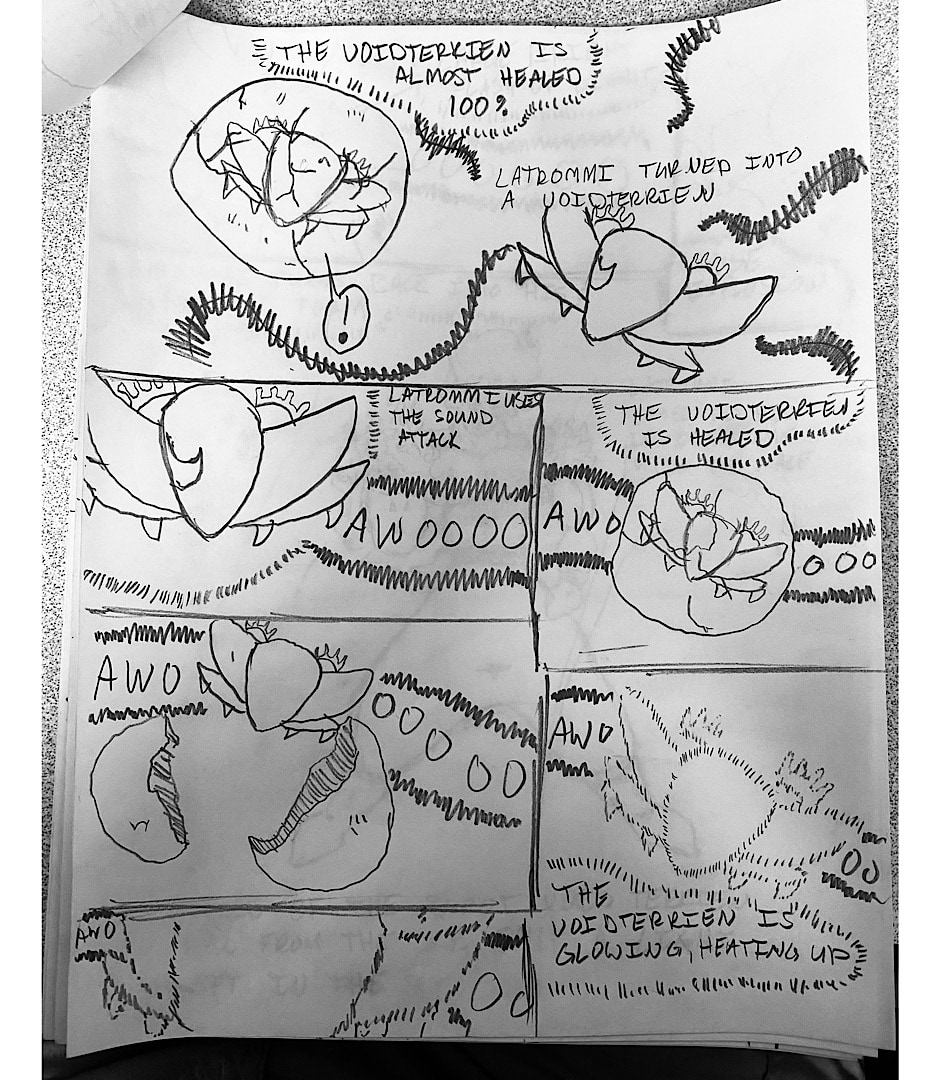 THE VOIDTERRIEN IS
ALMOST HEALED
100%
LATROMMI TURNED INTO
A VOIDTERRIEN
!
LATROMMI USES
THE SOUND
ATTACK
AWOOOO
THE VOIDTERRIEN
IS HEALED
AWO
OOO
AWO
OO
O
OO
AWO
OO
THE
VOIDTERRIEN IS
GLOWING, HEATING UP
AWO
OO